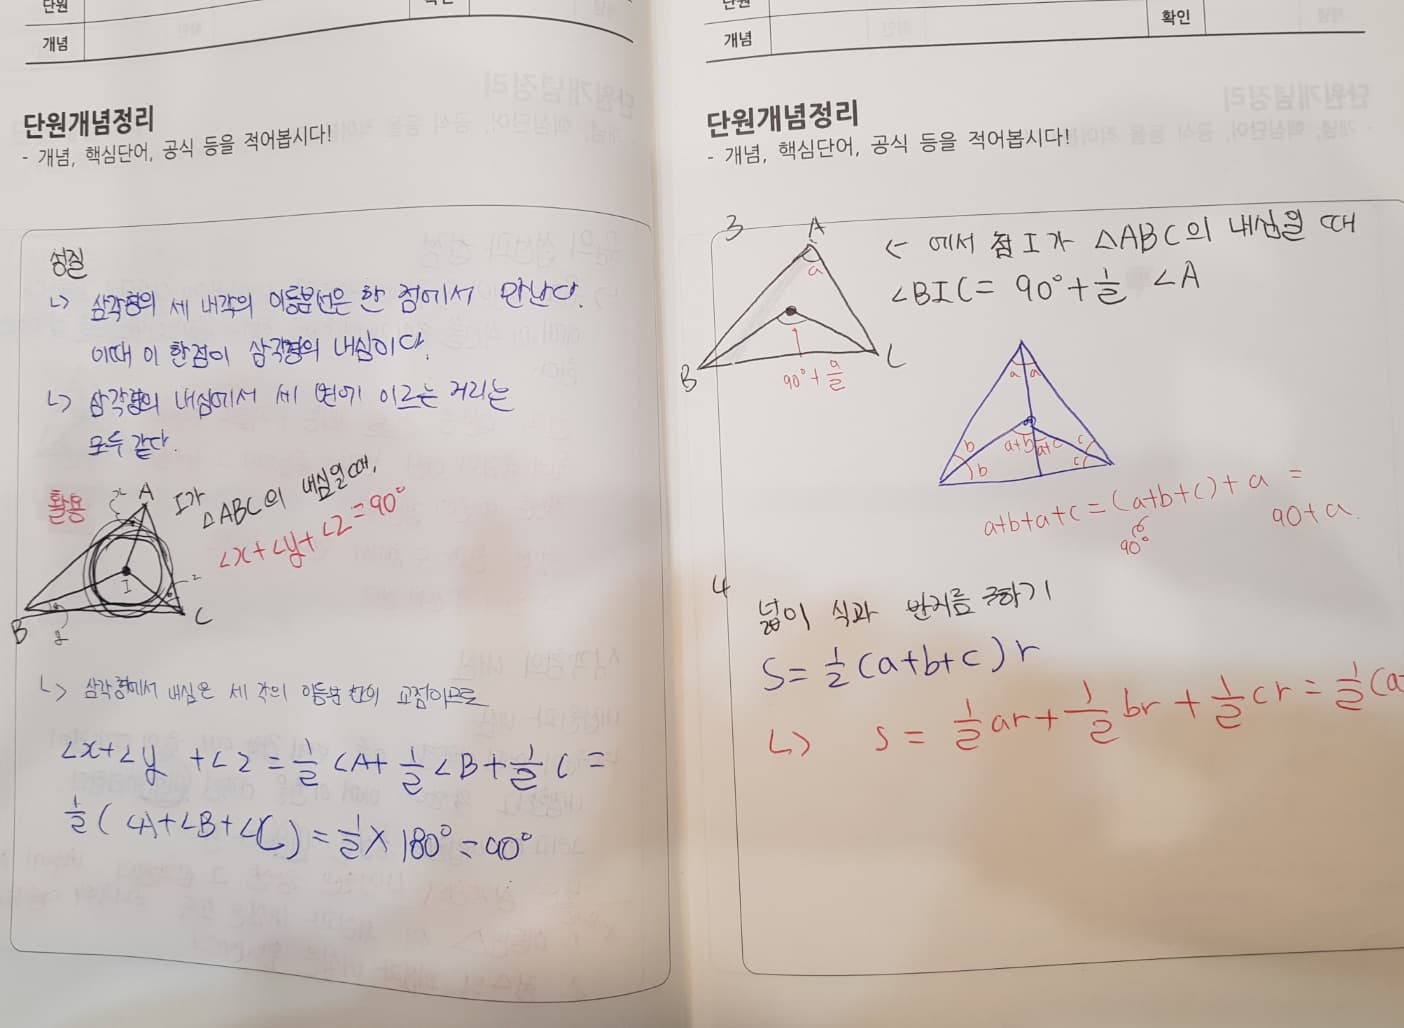 단원
개념
단원개념정리
- 개념, 핵심단어, 공식 등을 적어봅시다!
성질
↳ 삼각형의 세 내각의 이등분선은 한 점에서 만난다.
이때 이 한점이 삼각형의 내심이다.
↳ 삼각형의 내심에서 세 변에 이르는 거리는
모두 같다.
활용
x
A
I가
△ABC의 내심일 때,
∠x+∠y+∠z=90°
I
z
B
y
C
↳ 삼각형에서 내심은 세 각의 이등분선의 교점이므로
∠x+∠y+∠z=1/2∠A+1/2∠B+1/2C=
1/2(∠A+∠B+∠C)=1/2×180°=90°
단원
개념
확인
단원개념정리
- 개념, 핵심단어, 공식 등을 적어봅시다!
3
A
a
B
C
90°+a/2
← 에서 점 I가 △ABC의 내심일 때
∠BIC=90°+1/2∠A
a a
b
b
a+b a+c
c
c
a+b+a+c=(a+b+c)+a=
90°
90+a.
4
넓이 식과 반지름 구하기
S=1/2(a+b+c)r
↳ S=1/2ar+1/2br+1/2cr=1/2(a